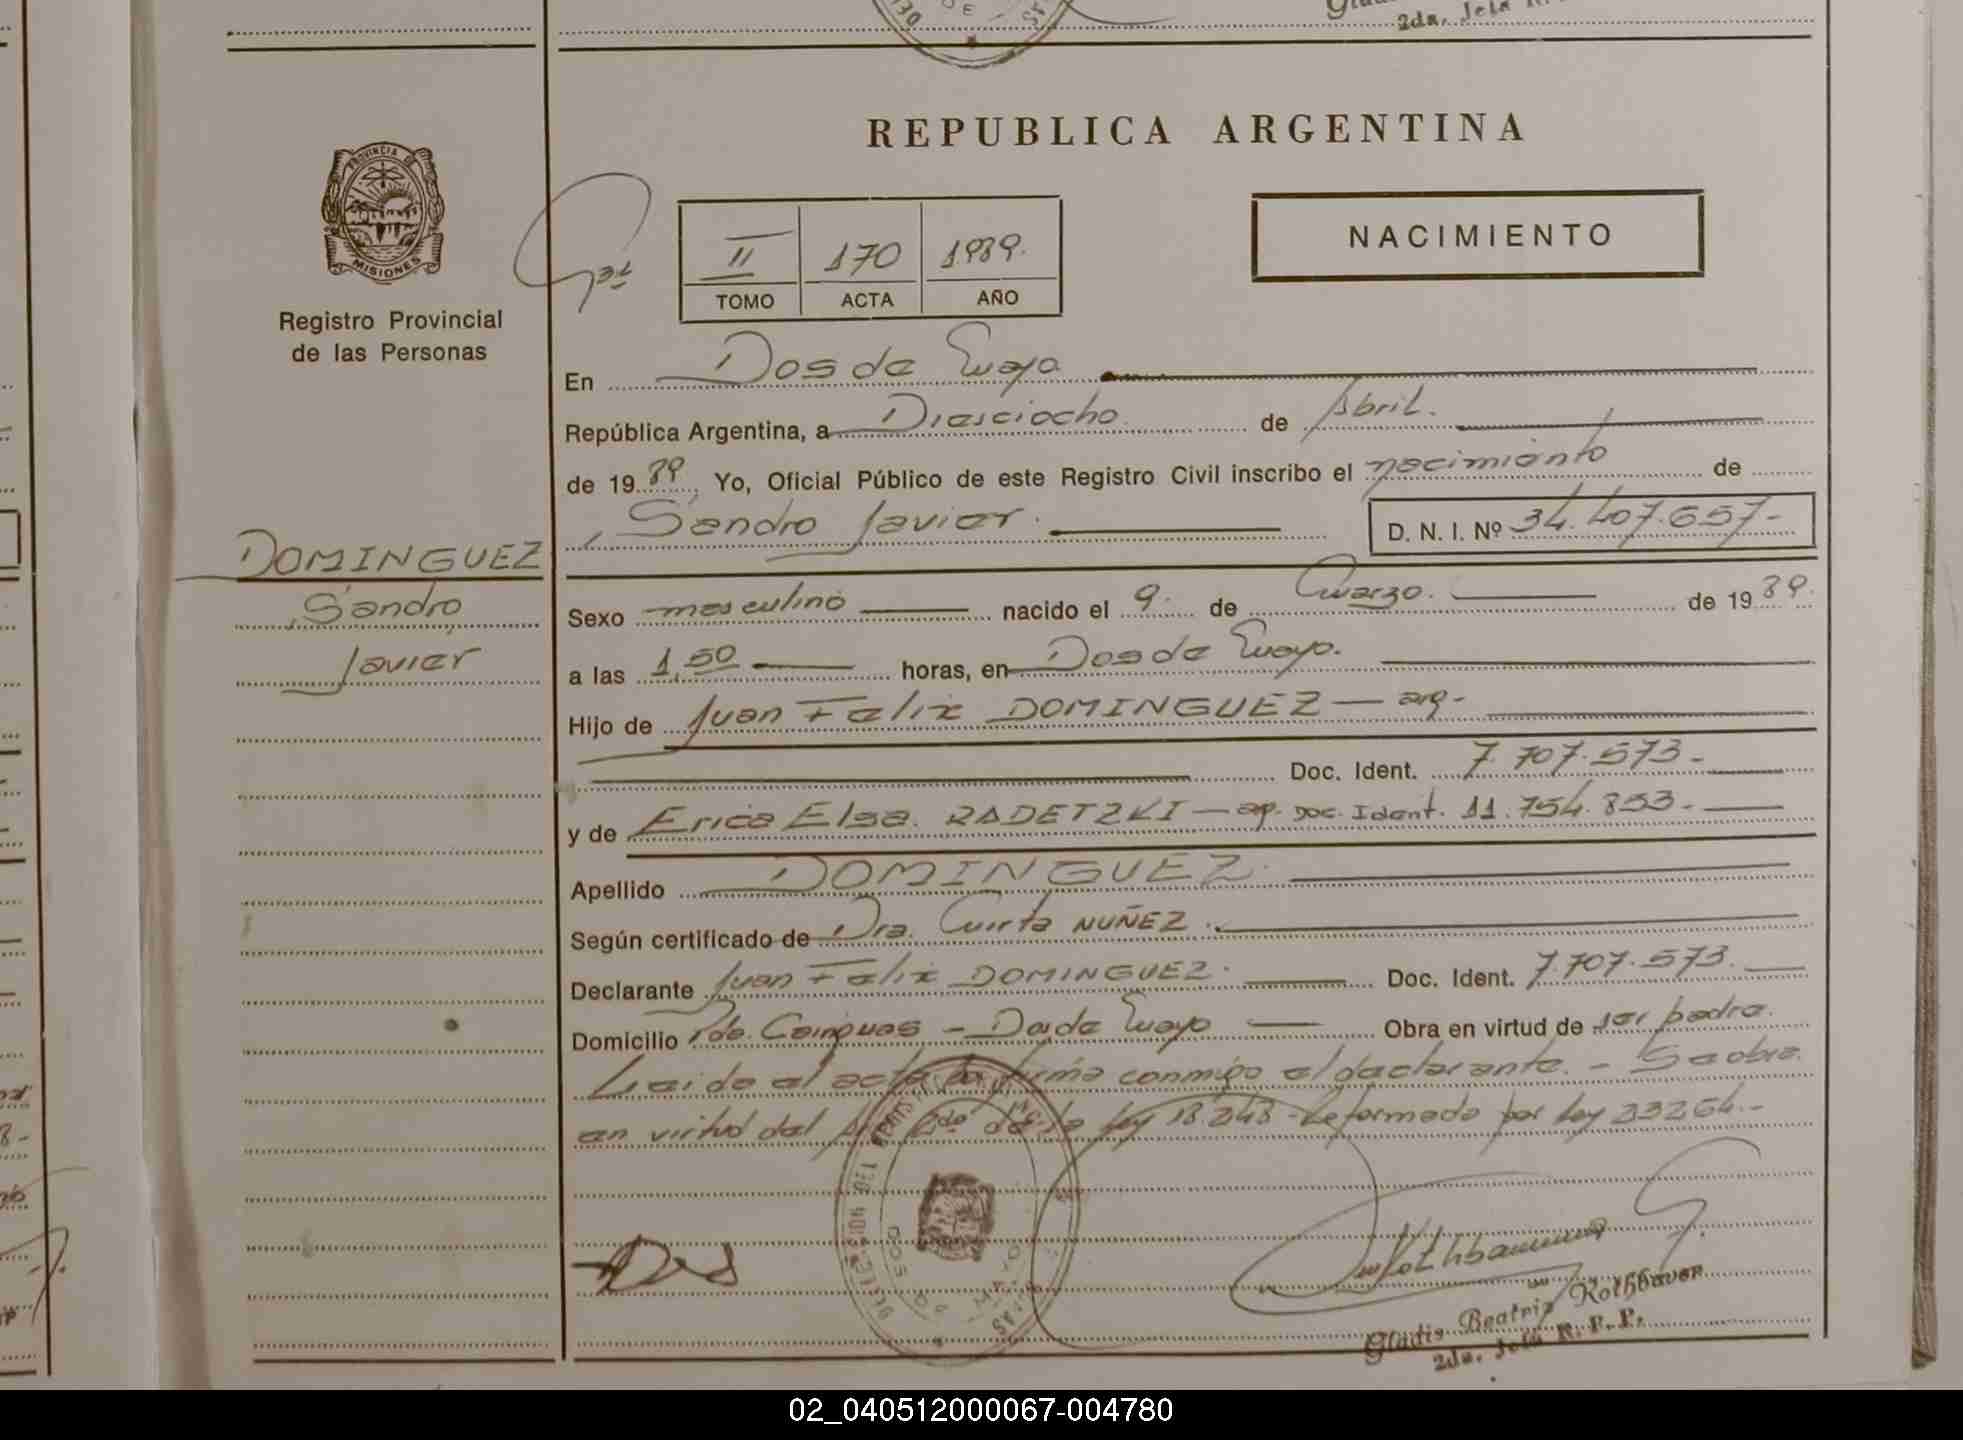 2da. Jefa
REPUBLICA ARGENTINA
PROVINCIA DE
MISIONES
Registro Provincial
de las Personas
II 170 1989.
TOMO ACTA AÑO
NACIMIENTO
En Dos de Mayo
República Argentina, a Diesciocho de Abril.
de 19 89, Yo, Oficial Público de este Registro Civil inscribo el nacimiento de
Sandro Javier. D. N. I. Nº 34.407.657-
DOMINGUEZ
Sandro
Javier
Sexo masculino nacido el 9. de Marzo. de 19 89.
a las 1,50 horas, en Dos de Mayo.
Hijo de Juan Felix DOMINGUEZ — arg-
Doc. Ident. 7.707.573-
y de Erica Elsa. RADETZKI — ag. Doc. Ident. 11.754.853-
Apellido DOMINGUEZ.
Según certificado de Dra. Mirta NUÑEZ.
Declarante Juan Felix DOMINGUEZ. Doc. Ident. 7.707.573.
Domicilio Pde. Cainguas - Dos de Mayo Obra en virtud de ser padre.
Leida el acta la firma conmigo el declarante. - Se obra
en virtud del Art. 2do de la Ley 18.248 - Reformado por Ley 23264.-
DOS DE MAYO
Gladis Beatriz Rothbauer
2da. Jefa R. P. P.
02_040512000067-004780